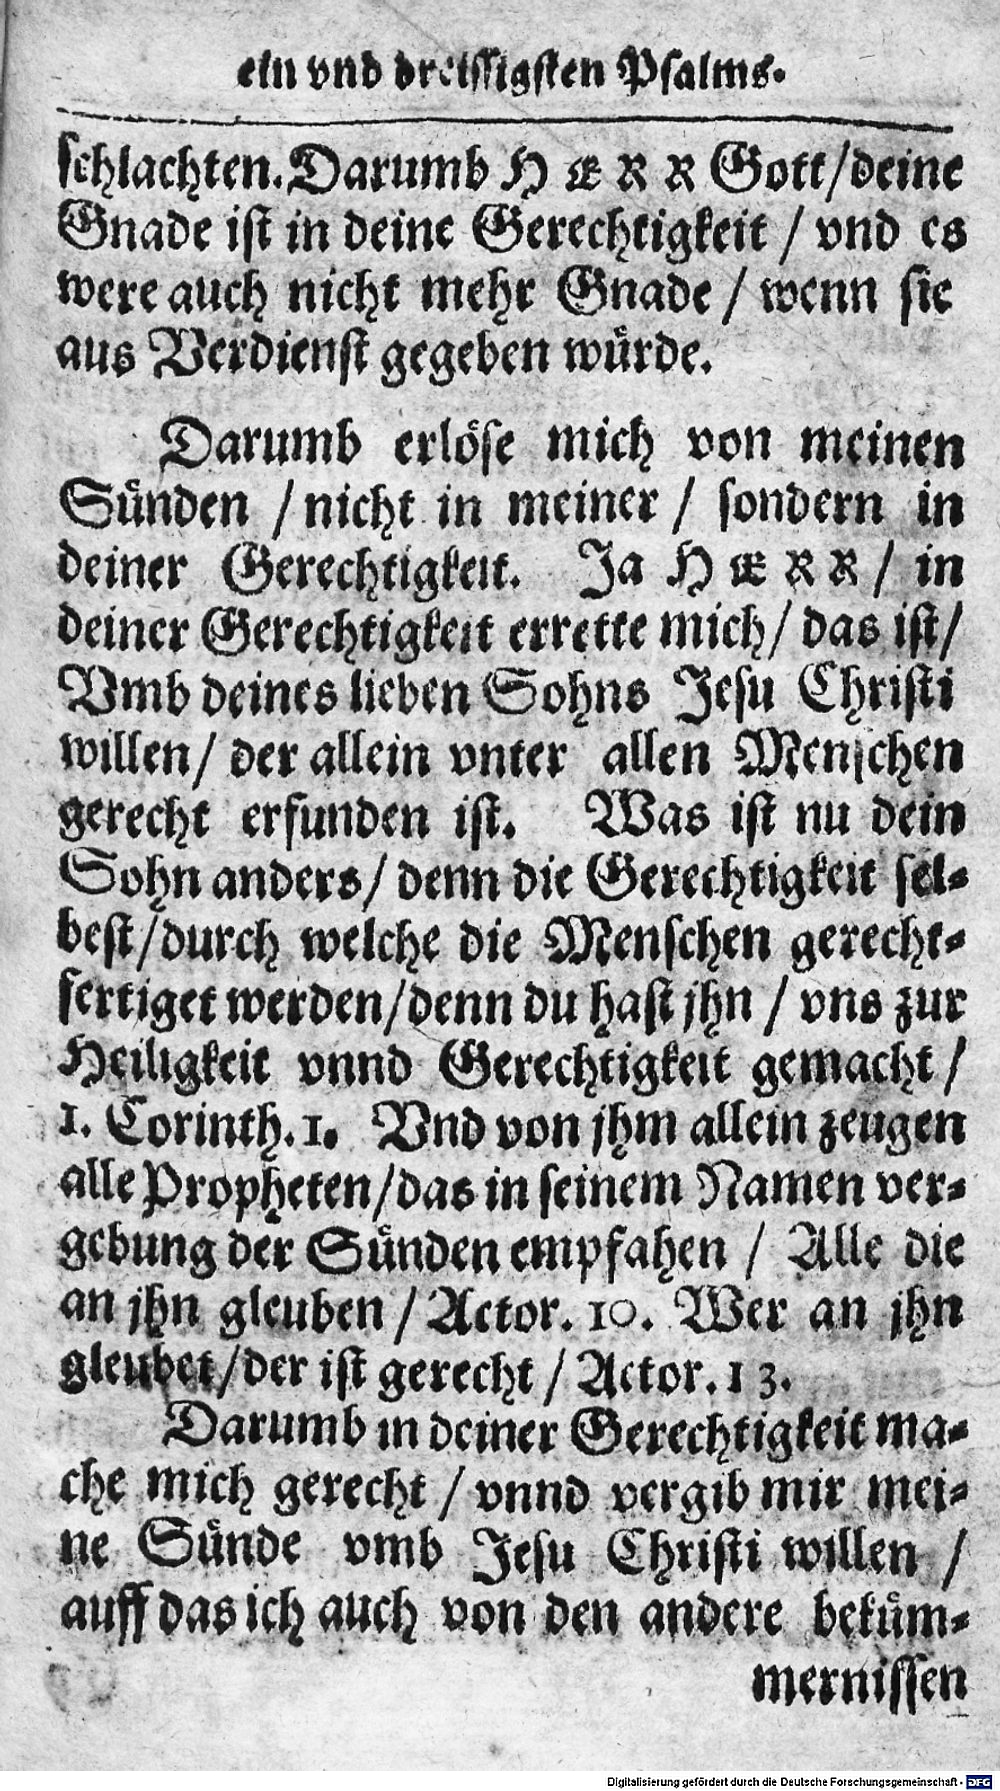 ein vnd dreissigsten Psalms.
schlachten. Darumb HERR Gott/deine
Gnade ist in deine Gerechtigkeit / vnd es
were auch nicht mehr Gnade / wenn sie
aus Verdienst gegeben würde.
Darumb erlöse mich von meinen
Sünden / nicht in meiner / sondern in
deiner Gerechtigkeit. Ja HERR / in
deiner Gerechtigkeit errette mich/ das ist/
Vmb deines lieben Sohns Jesu Christi
willen/ der allein vnter allen Menschen
gerecht erfunden ist. Was ist nu dein
Sohn anders/ denn die Gerechtigkeit sel-
best/durch welche die Menschen gerecht-
fertiget werden/denn du hast jhn / vns zur
Heiligkeit vnnd Gerechtigkeit gemacht /
1. Corinth. 1. Vnd von jhm allein zeugen
alle Propheten/das in seinem Namen ver-
gebung der Sünden empfahen / Alle die
an jhn gleuben / Actor. 10. Wer an jhn
gleubet/der ist gerecht / Actor. 13.
Darumb in deiner Gerechtigkeit ma-
che mich gerecht / vnnd vergib mir mei-
ne Sünde vmb Jesu Christi willen /
auff das ich auch von den andere beküm-
mernissen
Digitalisierung gefördert durch die Deutsche Forschungsgemeinschaft - DFG